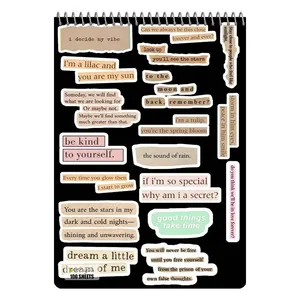 i decide my vibe
Can we always be this close
forever and ever?
look up
you'll see the stars
I'm a lilac and
you are my sun
to the
moon and
back, remember?
Someday, we will find
what we are looking for
Or maybe not.
Maybe we'll find something
much greater than that.
I'm a tulip,
you're the spring bloom
be kind
to yourself.
the sound of rain.
do you think we'll be in love forever?
Every time you glow then
I start to grow
if i'm so special
why am i a secret?
You are the stars in my
dark and cold nights—
shining and unwavering.
good things
take time
dream a little
dream of me
100 SHEETS
You will never be free
until you free yourself
from the prison of your
own false thoughts.